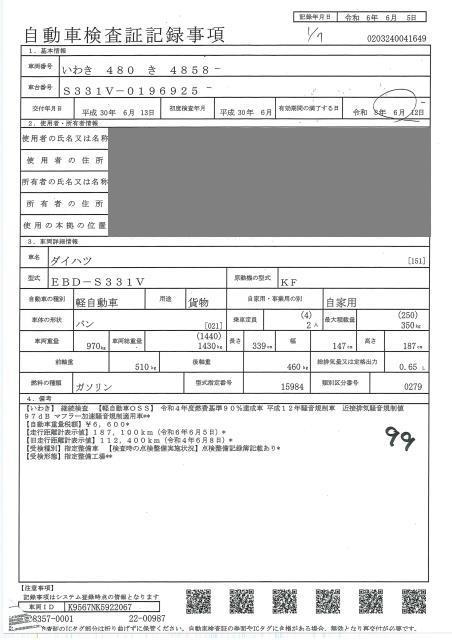 記録年月日 令和 6年 6月 5日
自動車検査証記録事項
1/7
0203240041649
1．基本情報
車両番号 いわき 480 き 4858
車台番号 S331V-0196925
交付年月日 平成 30年 6月 13日 初度検査年月 平成 30年 6月 有効期間の満了する日 令和 8年 6月 12日
2．使用者・所有者情報
使用者の氏名又は名称
使用者の住所
所有者の氏名又は名称
所有者の住所
使用の本拠の位置
3．車両詳細情報
車名 ダイハツ [151]
型式 EBD-S331V 原動機の型式 KF
自動車の種別 軽自動車 用途 貨物 自家用・事業用の別 自家用
車体の形状 バン [021] 乗車定員 (4) 2人 最大積載量 (250) 350kg
車両重量 970kg 車両総重量 (1440) 1430kg 長さ 339cm 幅 147cm 高さ 187cm
前軸重 510kg 後軸重 460kg 総排気量又は定格出力 0.65 L
燃料の種類 ガソリン 型式指定番号 15984 類別区分番号 0279
4．備考
【いわき】 継続検査 【軽自動車OSS】 令和4年度燃費基準90%達成車 平成12年騒音規制車 近接排気騒音規制値
97dB マフラー加速騒音規制適用車**
【自動車重量税額】¥6,600*
【走行距離計表示値】187,100km（令和6年6月5日）*
【旧走行距離計表示値】112,400km（令和4年6月8日）*
【受検種別】指定整備車 【検査時の点検整備実施状況】点検整備記録簿記載あり*
【受検形態】指定整備工場**
99
【注意事項】
記録事項はシステム登録時点の情報となります
車両ID K9567NK5922067
8357-0001 22-00987